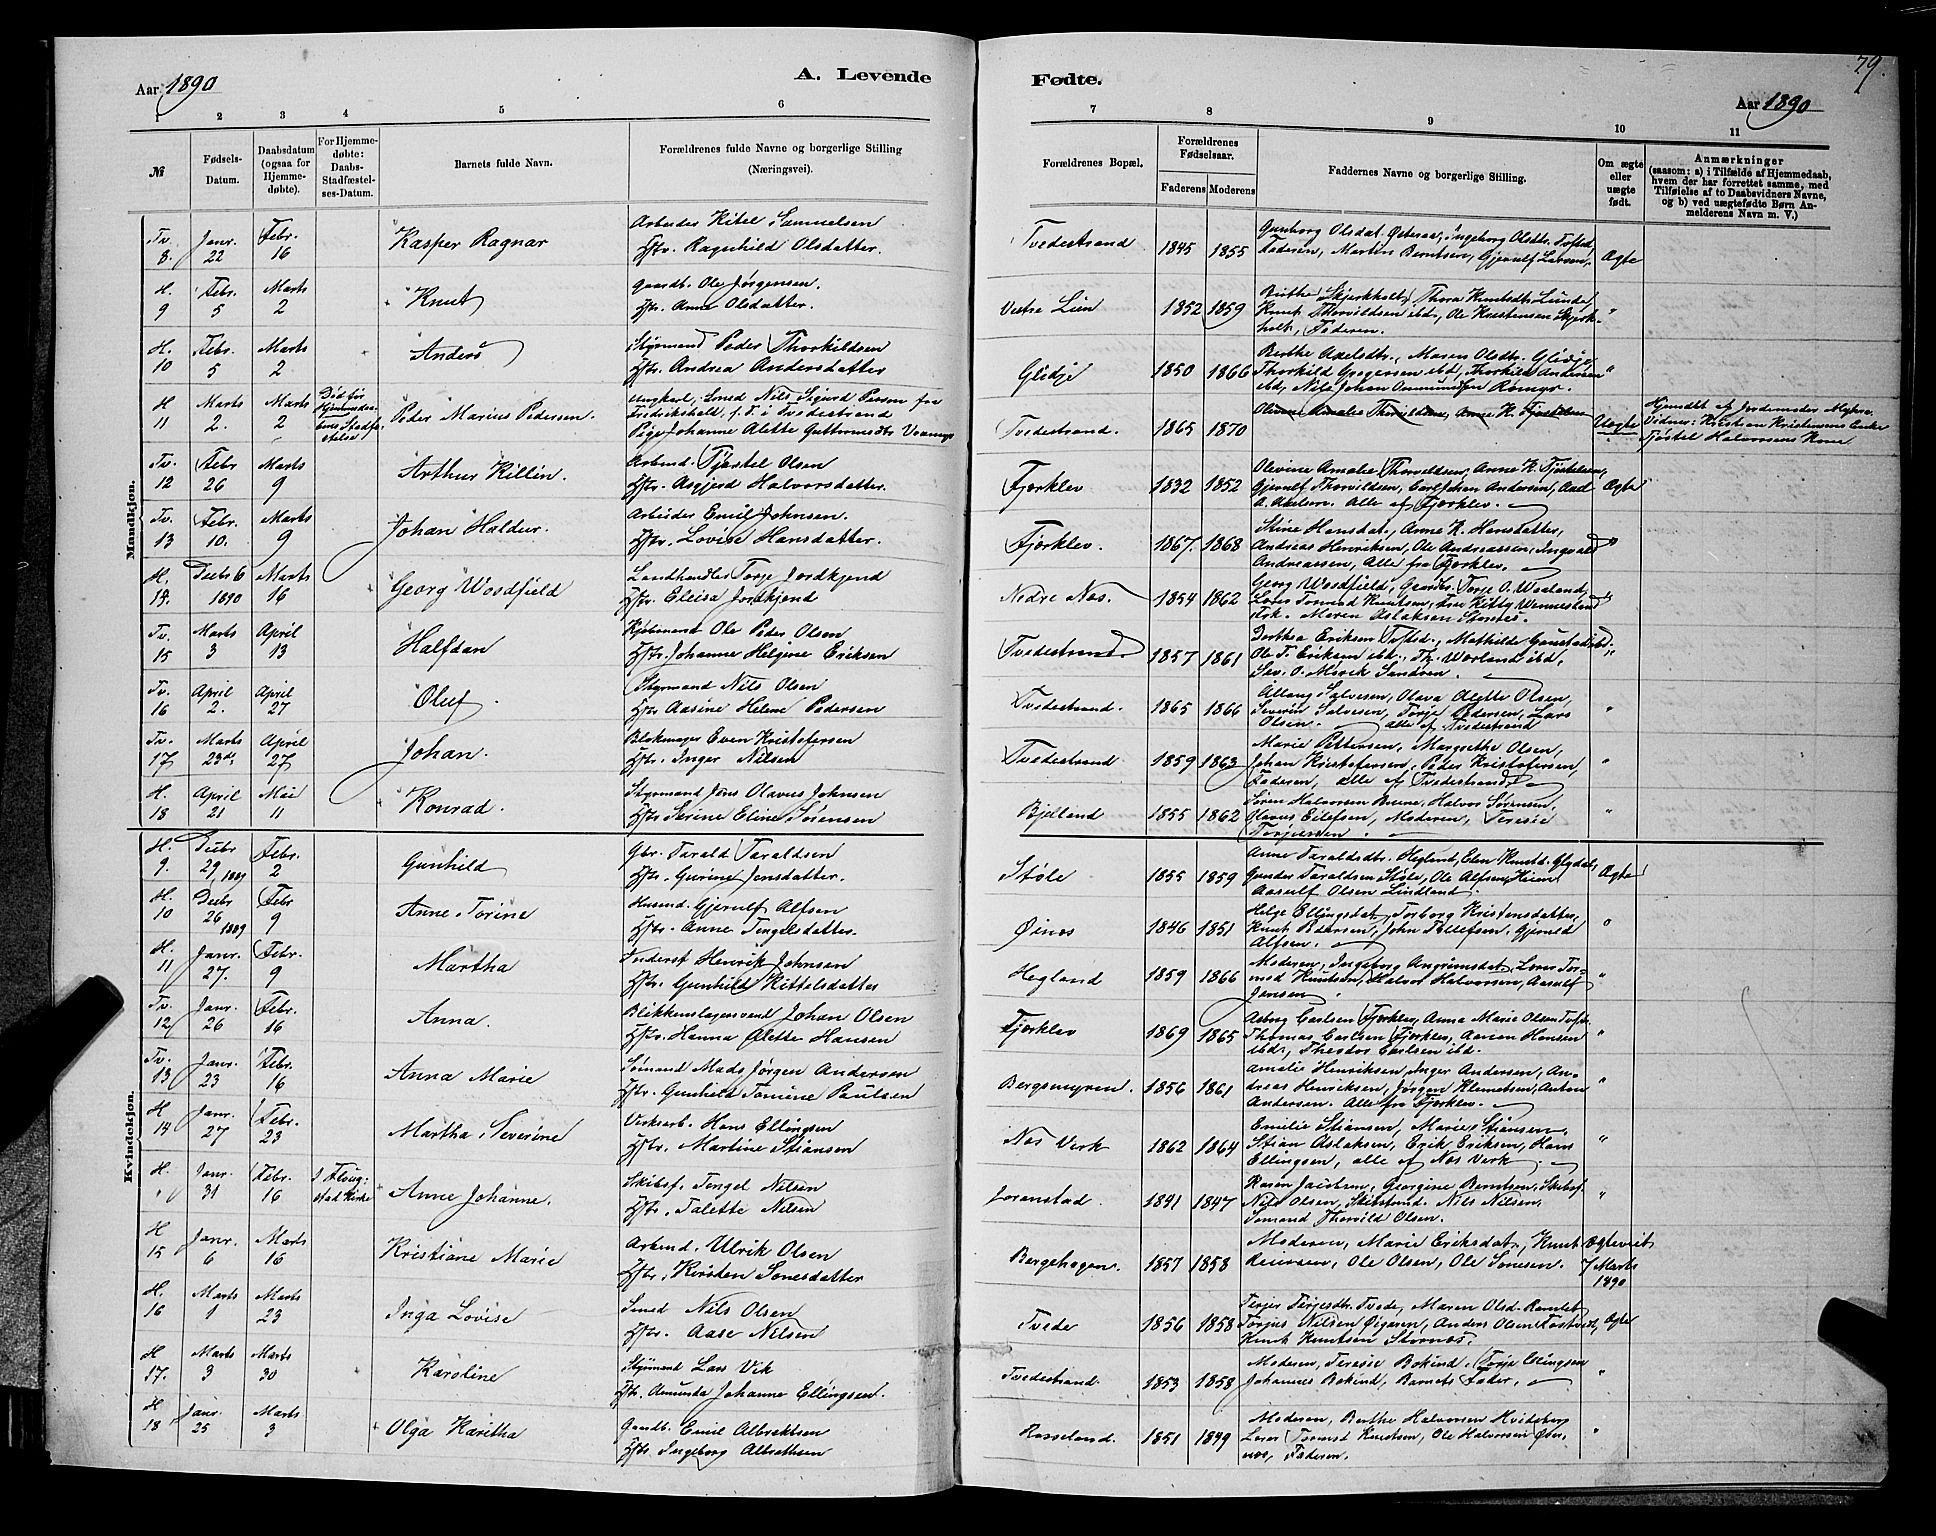 Aar 1890
A. Levende
Fødte.
79.
Aar 1890
1 2 3 4 5 6
7 8 9 10 11
№ Fødsels-Datum. Daabsdatum (ogsaa for Hjemmedøbte). For Hjemmedøbte: Daabs-Stadfæstelses-Datum. Barnets fulde Navn. Forældrenes fulde Navne og borgerlige Stilling (Næringsvei).
Forældrenes Bopæl. Forældrenes Fødselsaar. Faderens Moderens Faddernes Navne og borgerlige Stilling. Om ægte eller uægte født. Anmærkninger (saasom: a) i Tilfælde af Hjemmedaab, hvem der har forrettet samme, med Tilføielse af to Daabsvidners Navne, og b) ved uægtefødte Børn Anmelderens Navn m. V.)
Mandkjøn.
Tv. 8. Janr. 22 Febr. 16 Kasper Ragnar Arbeider Kitel Samuelsen
Hstr. Ragnhild Olsdatter.
Tvedestrand 1845 1855 Gunborg Olsdat. Østeraa, Ingeborg Olsdtr. Tvedstr.
Faderen, Martin Berntsen, Gjerulf Larsen. Ægte
H. 9 Febr. 5 Marts 2 Knut Gaardb. Ole Jørgensen.
Hstr. Anne Olsdatter.
Vestre Lien 1852 1859 Birthe Skjerkholt, Thora Knutsdtr Lunde,
Knut Thorvildsen ibd., Ole Kristensen Skjerk-
holt, Faderen. "
H. 10 Febr. 5 Marts 2 Anders Styrmand Peder Thorkildsen
Hstr. Andrea Andersdatter
Glidje 1850 1866 Berthe Axelsdtr., Maren Olsdtr. Glidje,
Thorkild Gregersen ibd, Thorkild Andersen
ibd, Nils Johan Ommundsen Romyr. "
H 11 Marts 2. Marts 2 Død før Hjemmedaabens Stadfæstelse Peder Marius Pedersen. Ungkarl, Smed Nils Sigurd Person fra
Fredrikshald, f. T. i Tvedestrand
Pige Johanne Alette Guttormsdtr
Tvedestrand. 1865 1870 Olivine Amalie Thorvildsen, Anne K. Fjærkleiv Uægte Hjemdbt af Jordemoder Myhre.
Vidner: Kristian Kristensens Enke
Tjøstel Halvorsens Kone
Tv. 12 Febr 26 Marts 9 Arthur Killin. Arbmd. Tjøstel Olsen
Hstr. Asgjerd Halvorsdatter.
Fjærklev 1832 1852 Olivine Amalie Thorvildsen, Anne K. Tjøstelsen,
Gjerulf Thorvildsen, Carl Johan Andersen, Aad
A. Axelsen. Alle af Fjærklev. Ægte
Tv. 13 Febr. 10. Marts 9 Johan Haldur. Arbeider Emil Johnsen.
Hstr. Lovise Hansdatter.
Fjærklev. 1867. 1868 Stine Hansdat., Anne K. Hansdatter,
Andreas Henriksen, Ole Andreassen, Ingvald
Andreassen, Alle fra Fjærklev. "
H. 14. Decbr 6 1890 Marts 16 Georg Woodfield Landhandler Torje Jordkjend
Hstr. Eleisa Jordkjend
Nedre Nes. 1854 1862 Georg Woodfield, Torje O. Wærland,
Lars Tormod Knutsen, Fru Kitty Wennestrand
Frk. Maren Aslaksen Størnes. "
Tv. 15 Marts 3 April 13 Halfdan Kjøbmand Ole Peder Olsen
Hstr. Johanne Helgine Eriksen
Tvedestrand. 1857 1861 Dorthea Eriksen Tvedstr., Mathilde ibd.,
Ole T. Eriksen ibd., Th. Wærland ibd.,
Sev. O. Mørvik Sandøen. "
Tv. 16 April 2. April 27 Oluf. Styrmand Nils Olsen
Hstr Aasine Helene Pedersen
Tvedestrand. 1865 1866 Aslaug Salvesen, Olava Olette Olsen,
Severin Salvesen, Torje Pedersen, Lars
Olsen. alle af Tvedestrand "
Tv. 17 Marts 23de April 27 Johan. Blokmager Even Kristofersen
Hstr. Inger Nilsen
Tvedestrand. 1859 1863 Marie Pettersen, Margrethe Olsen,
Johan Kristofersen, Peder Kristofersen,
Faderen, alle af Tvedestrand "
H. 18 April 21 Mai 11 Konrad. Styrmand Jens Olavus Johnsen
Hstr Serine Eline Sørensen
Bjelland 1855 1862 Søren Halvorsen Brene, Halvor Sørensen,
Hans Eilefsen, Moderen, Teresie
Torjersen. "
Kvindekjøn.
H. 9. Decbr 29 1889 Febr. 2 Gunhild Gbr. Tarald Taraldsen
Hstr. Gurine Jensdatter.
Støle 1855 1859 Anne Taraldsdtr. Hegland, Elen Knutsd. Glydal,
Gunder Taraldsen Støle, Ole Alfsen Heien
Aasulf Olsen Lindland. Ægte
H. 10 Decbr 26 1889 Febr 9 Anne Torine Husmd. Gjerulf Alfsen
Hstr. Anne Tengelsdatter.
Øines 1846 1851 Helge Ellingsdat., Torborg Kristensdatter,
Knut Pedersen, John Tollefsen, Gjeruld
Alfsen. "
H. 11 Janr. 27. Febr. 9 Martha Inderst Henrik Johnsen
Hstr. Gunhild Kittelsdatter
Hegland 1859 1866 Moderen, Ingeborg Angrimsdat., Lars Tor-
mod Knutsen, Halvor Halvorsen, Aasulf
Jensen. "
Tv. 12 Janr. 26 Febr. 16 Anna. Blikkenslagersvend Johan Olsen
Hstr. Hanna Olette Hansen
Fjærklev 1869 1865 Aaborg Carlsen Fjærklev, Anna Marie Olsen Tvedstr.
Thomas Carlsen Fjærklev, Aanon Hansen
ibd., Theodor Carlsen ibd. "
Tv. 13 Janr. 23 Febr. 16 Anna Marie Sømand Mads Jørgen Andersen
Hstr. Gunhild Tomine Paulsen
Bergsmyren. 1856 1861 Amalie Henriksen, Inger Andersen, An-
dreas Henriksen, Jørgen Klemetsen, Anton
Andersen. Alle fra Fjærklev. "
H 14 Janr. 27 Febr. 23 Martha Severine Verksarb. Hans Ellingsen
Hstr. Martine Stiansen
Nes Verk 1862 1864 Emilie Stiansen, Marie Stiansen,
Stian Aslaksen, Erik Eriksen, Hans
Ellingsen, alle af Nes Verk. "
H. Janr. 31 Febr. 16 I Flougstad Kirke Anne Johanne. Skibsf. Tengel Nilsen
Hstr. Talette Nilsen
Loranstad 1841 1847 Karen Jacobsen, Georgine Berntsen, Skibsf.
Nils Olsen, Skibstmd. Nils Nilsen,
Sømand Thorvild Olsen. "
H 15 Janr. 6 Marts 16 Kristiane Marie Arbmd. Ulrik Olsen
Hstr. Kirsten Sonesdatter
Bergehagen. 1857 1858 Moderen, Marie Eriksdat., Knut
Reiersen, Ole Olsen, Ole Sonesen. Ægteviet 7 Marts 1890
H. 16 Marts 1 Marts 23 Inga Lovise Smed Nils Olsen
Hstr. Aase Nilsen
Tvede 1856 1858 Terjer Terjesdtr. Tvede, Maren Olsd. Ramlet
Torjus Nilsen Øigaren, Anders Olsen Fostveit,
Knut Knutsen Størnes. Ægte
H 17. Marts 3 Marts 30 Karoline Styrmand Lars Vik
Hstr. Amunda Johanne Ellingsen.
Tvedestrand. 1853 1858 Moderen, Teresie Bokind, Torje Ellingsen
Johannes Bokind, Barnets Fader. "
H 18 Janr. 25 Marts 3 Olga Karitha Gaardb. Emil Albrektsen
Hstr Ingeborg Albrektsen
Rosseland. 1851 1849 Moderen, Berthe Halvorsen Hvideberg
Lars Tormod Knutsen, Ole Halvorsen Øster-
nes, Faderen. "